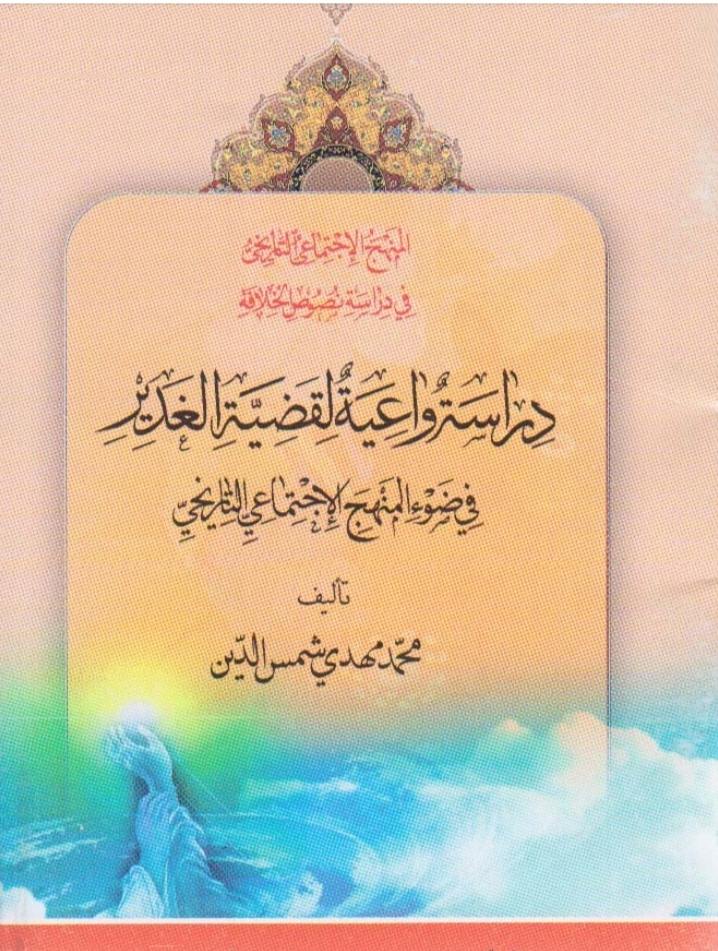 المَنْهَجُ الإِجْتِمَاعِيُّ التَّارِيخِيُّ
فِي دِرَاسَةِ نُصُوصِ الخِلَافَةِ
دِرَاسَةٌ وَاعِيَةٌ لِقَضِيَّةِ الغَدِيرِ
فِي ضَوْءِ المَنْهَجِ الإِجْتِمَاعِيِّ التَّارِيخِيِّ
تأليف
محمّد مهدي شمس الدّين